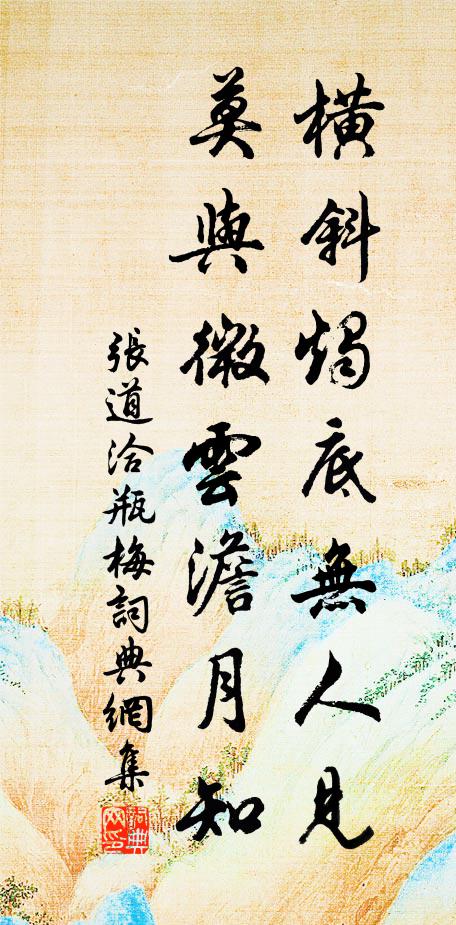 橫斜燭底無人見
莫與微雲澹月知
張道洽瓶梅詞典網集
詞典